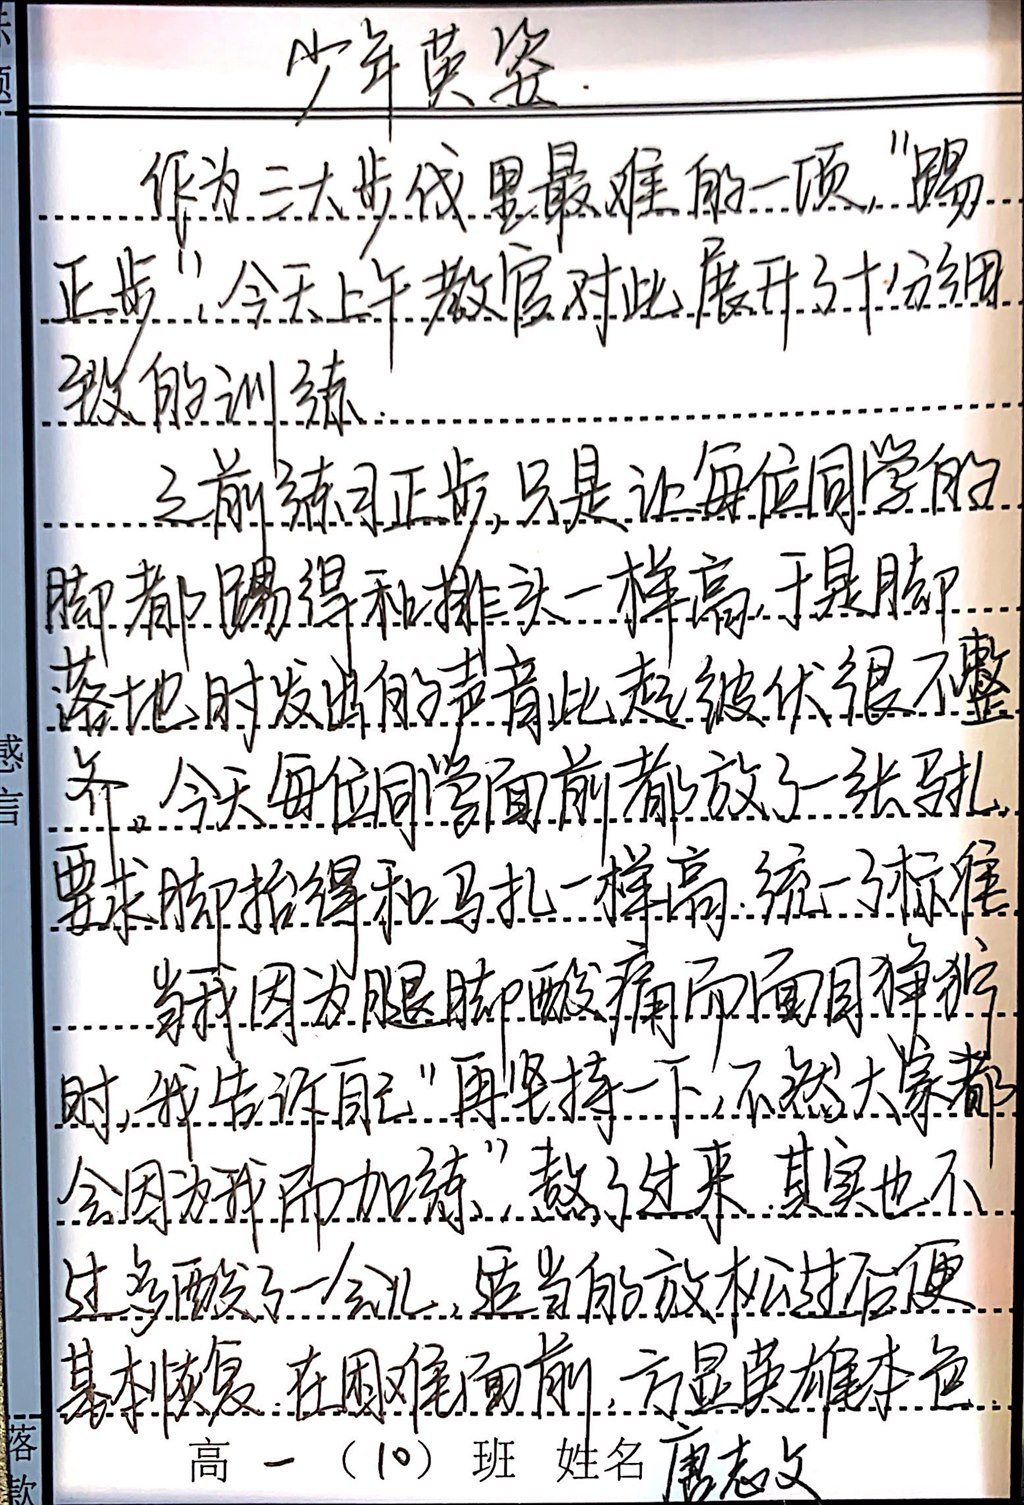 标题
少年英姿.
作为三大步伐里最难的一项,"踢
正步",今天上午教官对此展开了十分细
致的训练.
之前练习正步,只是让每位同学的
脚都踢得和排头一样高,于是脚
落地时发出的声音此起彼伏很不整
齐。今天每位同学面前都放了一张马扎,
要求脚抬得和马扎一样高.统一了标准
当我因为腿脚酸痛而面目狰狞
时,我告诉自己"再坚持一下,不然大家都
会因为我而加练",熬了过来.其实也不
过多酸了一会儿,适当的放松过后便
基本恢复.在困难面前,方显英雄本色.
感言
落款
高一(10)班 姓名唐志文